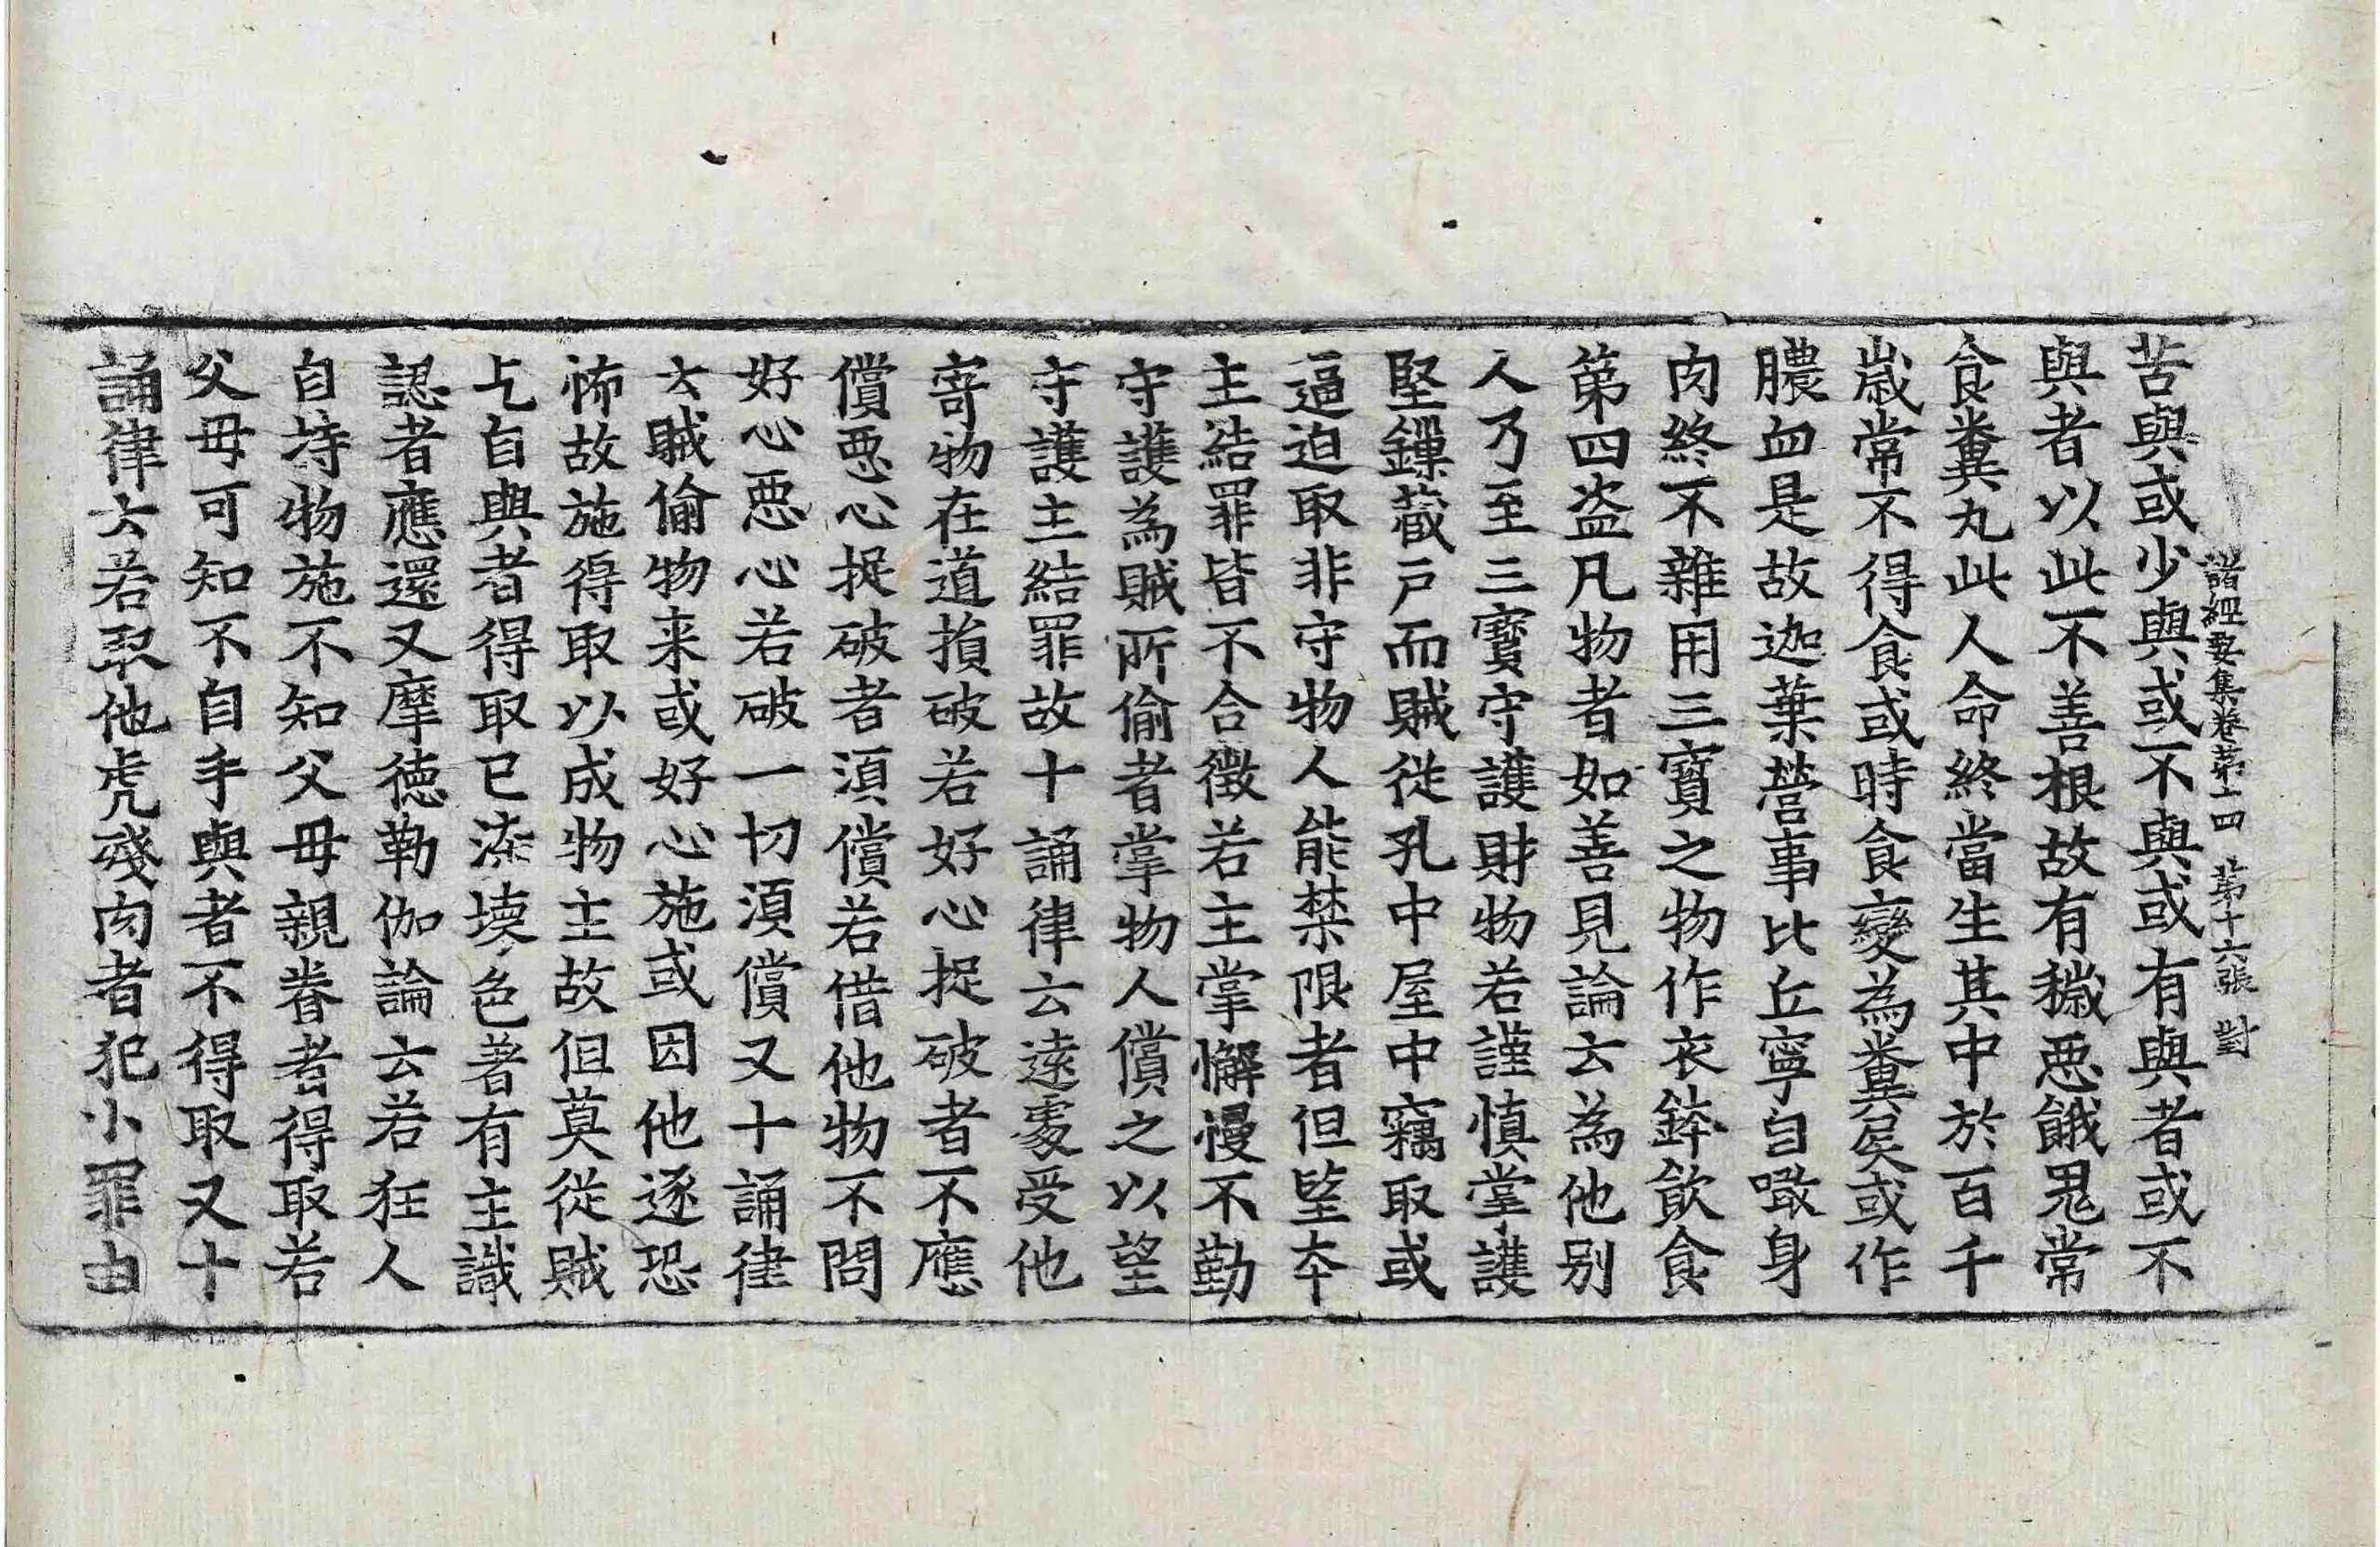 諸經要集卷第十四　第十六張　對
苦與或少與或不與或有與者或不
與者以此不善根故有穢惡餓鬼常
食糞丸此人命終當生其中於百千
歲常不得食或時食變為糞屎或作
膿血是故迦葉營事比丘寧自噉身
肉終不雜用三寶之物作衣鉢飲食
第四盜凡物者如善見論云為他別
人乃至三寶守護財物若謹慎掌護
堅鏁藏戶而賊從孔中屋中竊取或
逼迫取非守物人能禁限者但望本
主結罪皆不合徵若主掌懈慢不勤
守護為賊所偷者掌物人償之以望
守護主結罪故十誦律云遠處受他
寄物在道損破若好心捉破者不應
償惡心捉破者須償若借他物不問
好心惡心若破一切須償又十誦律
云賊偷物来或好心施或因他逐恐
怖故施得取以成物主故但莫從賊
乞自與者得取已染壞色著有主識
認者應還又摩德勒伽論云若狂人
自持物施不知父母親眷者得取若
父母可知不自手與者不得取又十
誦律云若取他虎殘肉者犯小罪由